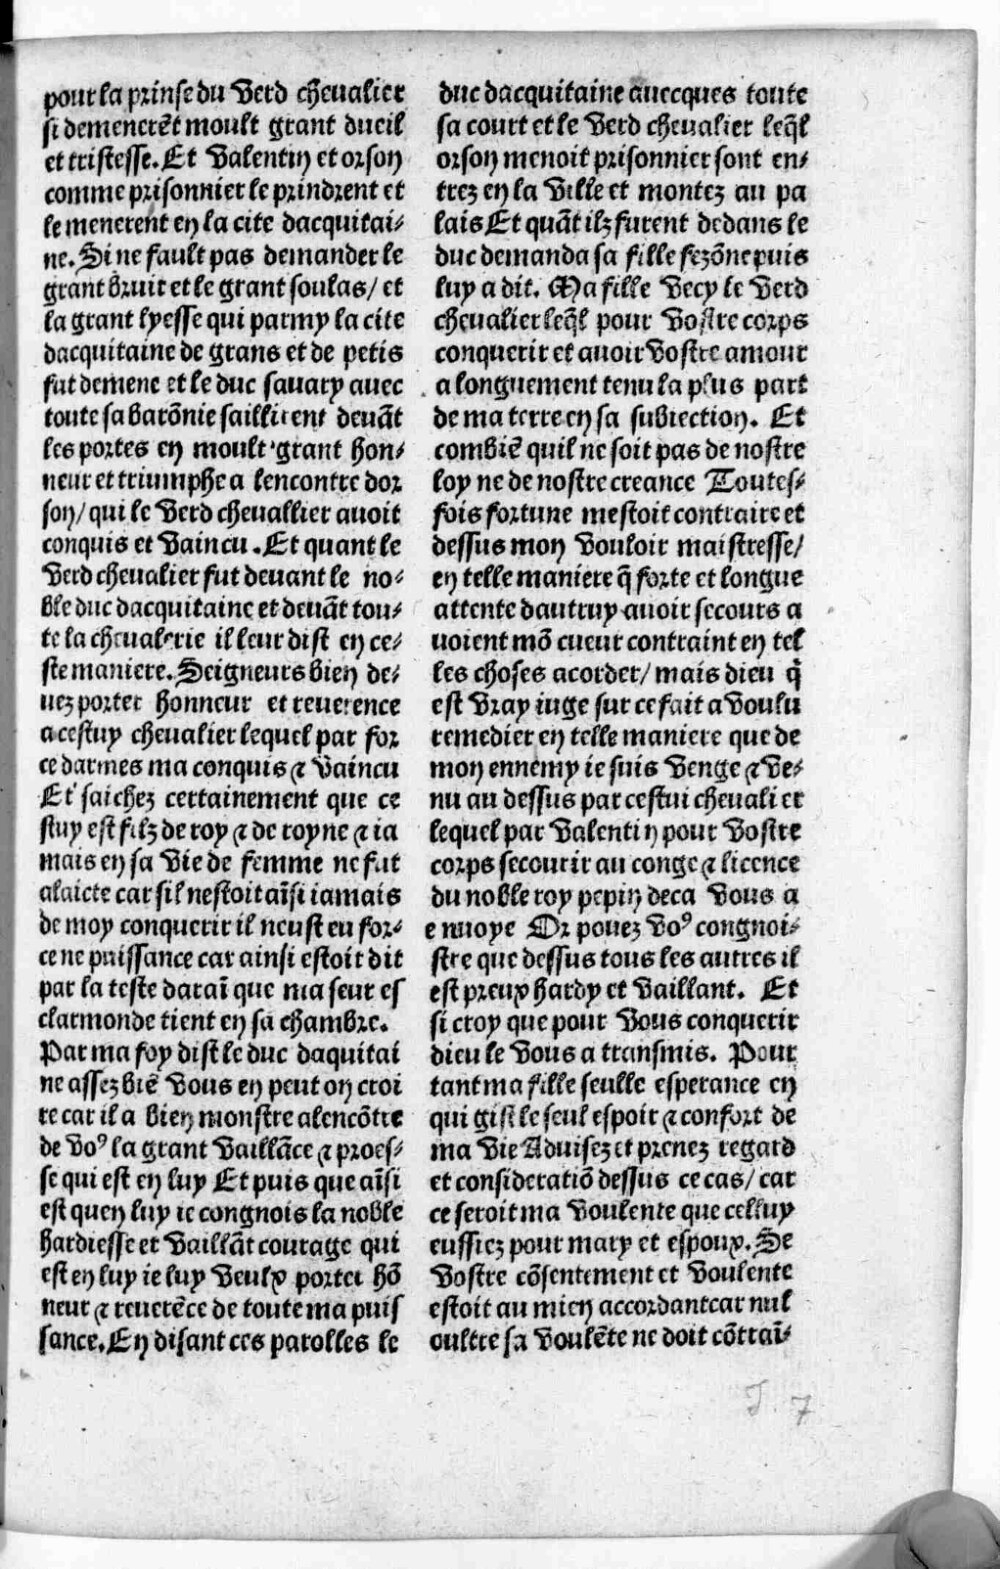 pour la prinse du Verd cheualier
si demenerẽt moult grant dueil
et tristesse. Et Valentin et orson
comme prisonnier le prindrent et
le menerent en la cite dacquitai-
ne. Si ne fault pas demander le
grant bruit et le grant soulas/ et
la grant lyesse qui parmy la cite
dacquitaine de grans et de petis
fut demene et le duc sauary auec
toute sa barõnie saillirent deuãt
les portes en moult grant hon-
neur et triumphe a lencontre dor
son/ qui le Verd cheuallier auoit
conquis et Vaincu. Et quant le
Verd cheualier fut deuant le no-
ble duc dacquitaine et deuãt tou-
te la cheualerie il leur dist en ce-
ste maniere. Seigneurs bien de-
uez porter honneur et reuerence
a cestuy cheualier lequel par for
ce darmes ma conquis ⁊ Vaincu
Et saichez certainement que ce
stuy est filz de roy ⁊ de royne ⁊ ia
mais en sa Vie de femme ne fut
alaicte car sil nestoit aĩsi iamais
de moy conquerir il neust eu for-
ce ne puissance car ainsi estoit dit
par la teste daraĩ que ma seur es
clarmonde tient en sa chambre.
Par ma foy dist le duc daquitai
ne assez biẽ Vous en peut on croi
re car il a bien monstre alencõtre
de Voꝰ la grant Vaillãce ⁊ proes-
se qui est en luy Et puis que aĩsi
est quen luy ie congnois la noble
hardiesse et Vaillãt courage qui
est en luy ie luy Veulx porter hõ
neur ⁊ reuerẽce de toute ma puis
sance. En disant ces parolles le
duc dacquitaine auecques toute
sa court et le Verd cheualier leq̃l
orson menoit prisonnier sont en-
trez en la Ville et montez au pa
lais Et quãt ilz furent dedans le
duc demanda sa fille fezõne puis
luy a dit. Ma fille Vecy le Verd
cheualier leq̃l pour Vostre corps
conquerir et auoir Vostre amour
a longuement tenu la plus part
de ma terre en sa subiection. Et
combiẽ quil ne soit pas de nostre
loy ne de nostre creance Toutes-
fois fortune mestoit contraire et
dessus mon Vouloir maistresse/
en telle maniere q̃ forte et longue
attente dautruy auoir secours a
uoient mõ cueur contraint en tel
les choses acorder/ mais dieu q̃
est Vray iuge sur ce fait a Voulu
remedier en telle maniere que de
mon ennemy ie suis Venge ⁊ Ve-
nu au dessus par cestui cheualier
lequel par Valentin pour Vostre
corps secourir au conge ⁊ licence
du noble roy pepin deca Vous a
enuoye Or pouez Voꝰ congnoi-
stre que dessus tous les autres il
est preux hardy et Vaillant. Et
si croy que pour Vous conquerir
dieu le Vous a transmis. Pour
tant ma fille seulle esperance en
qui gist le seul espoir ⁊ confort de
ma Vie Aduisez et prenez regard
et consideratiõ dessus ce cas/ car
ce seroit ma Voulente que celluy
eussiez pour mary et espoux. Se
Vostre cõsentement et Voulente
estoit au mien accordant car nul
oultre sa Voulẽte ne doit cõtraĩ-
J. 7